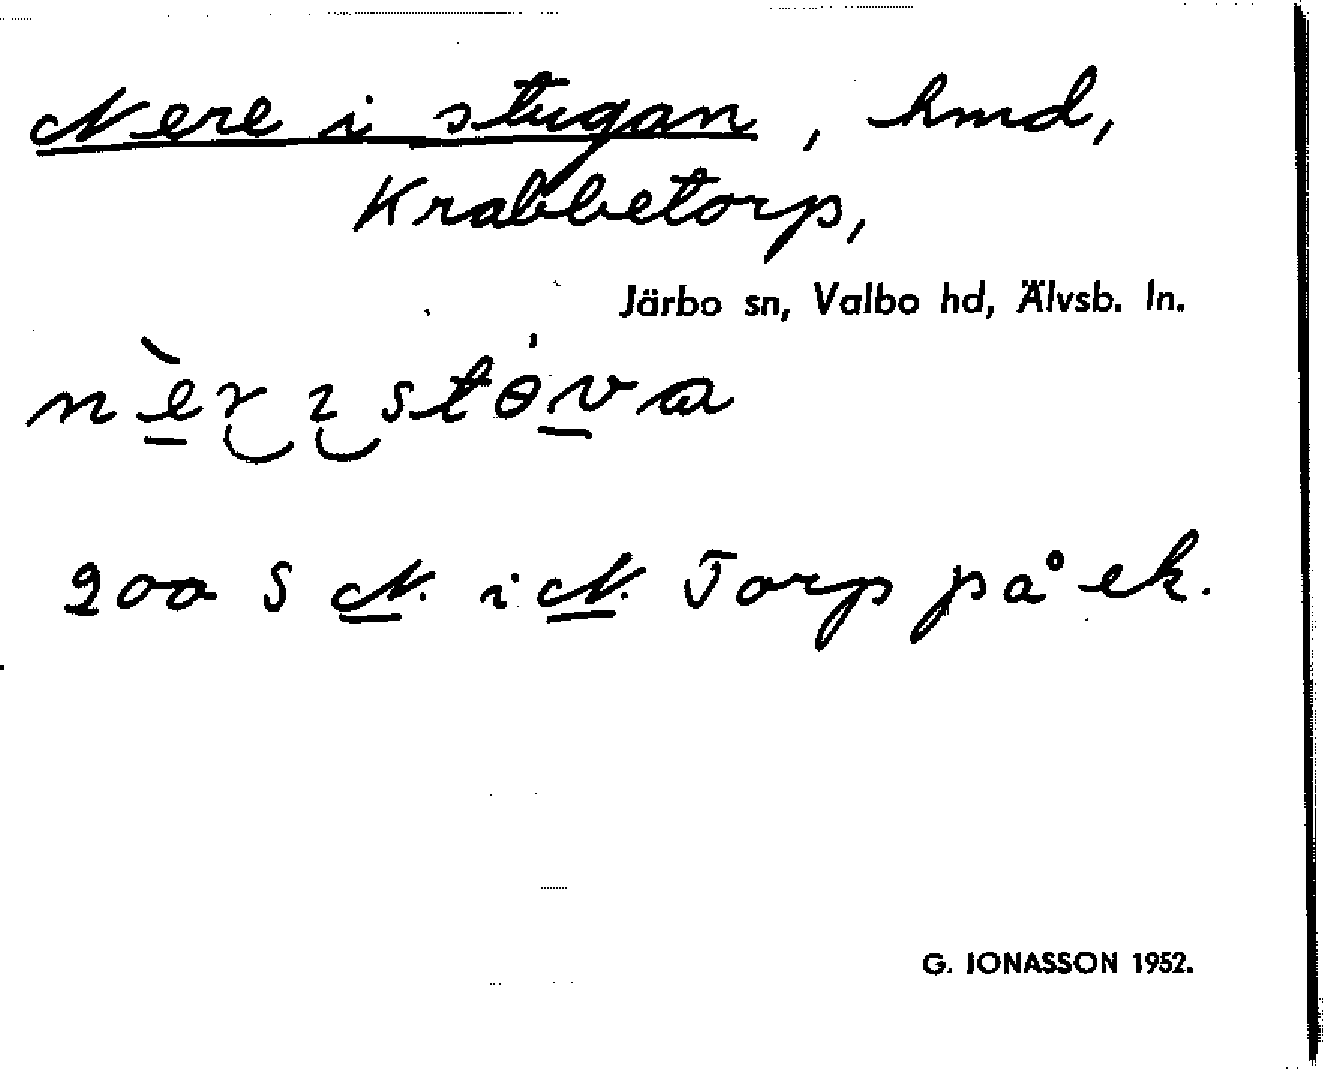 Nere i stugan, hmd,
Krabbetorp,
Järbo sn, Valbo hd, Älvsb. ln.
nèr ı stóva
200 S N. i N. Torp på ek.
G. IONASSON 1952.